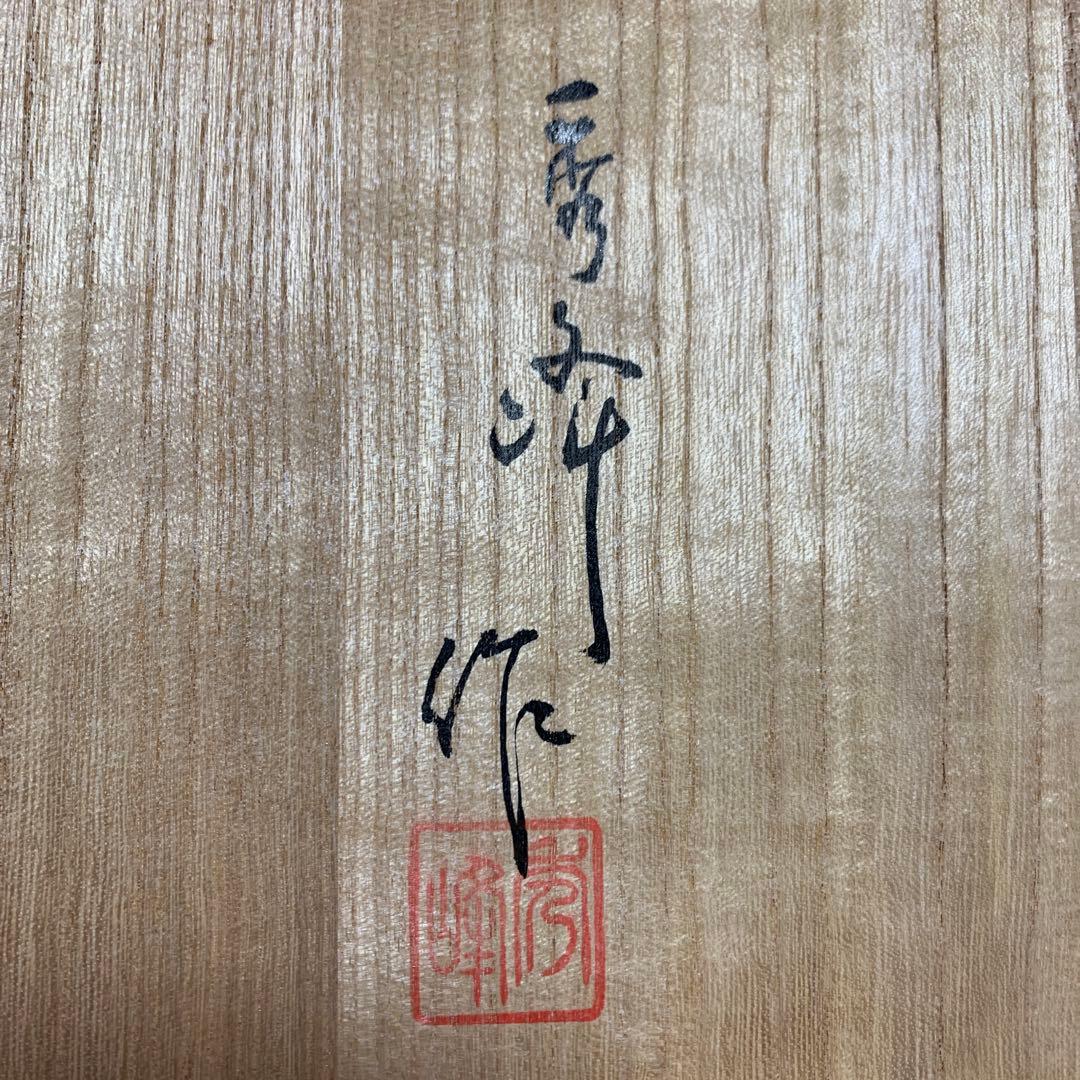 秀峰作
秀峰